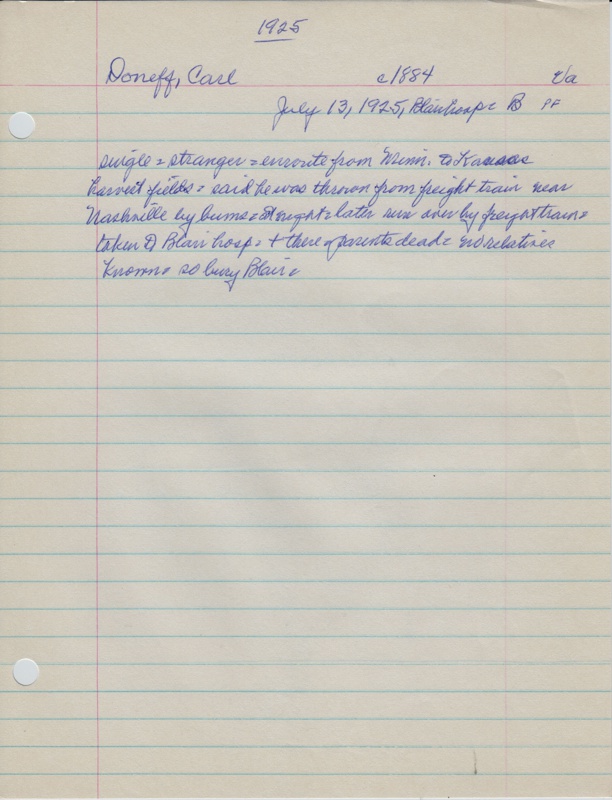 1925
Doneff, Carl c1884 Va
July 13, 1925, Blair hosp = B PF
single = stranger = enroute from Minn. to Kansas
harvest fields = said he was thrown from freight train near
Nashville by bums = at night & later run over by freight train =
taken to Blair hosp = + there = parents dead = no relatives
known = so bury Blair =